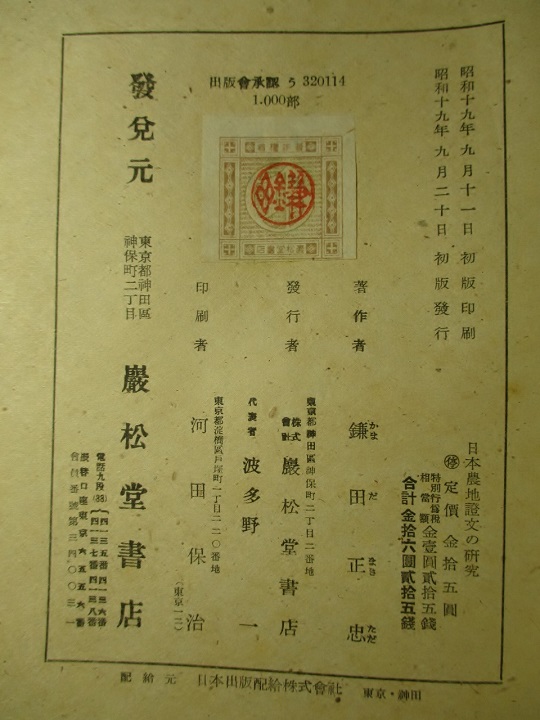 昭和十九年九月十一日 初版印刷
昭和十九年九月二十日 初版發行
日本農地證文の研究
㊕定價 金拾五圓
特別行爲税相當額 金壹圓貳拾五錢
合計金拾六圓貳拾五錢
出版會承認 う 320114
1.000部
著作者 鎌田正忠
かま だ まさ ただ
發行者
東京都神田區神保町二丁目二番地
株式會社 巖松堂書店
代表者 波多野一
印刷者
東京都淀橋區戸塚町一丁目二一〇番地
河田保治
(東京一二)
發兌元
東京都神田區
神保町二丁目
巖松堂書店
電話九段(33)
四一三五番 四一三六番
四一三七番 四一三八番
振替口座東京六五五六番
會員番號第三四〇〇三一
配給元 日本出版配給株式會社 東京・神田